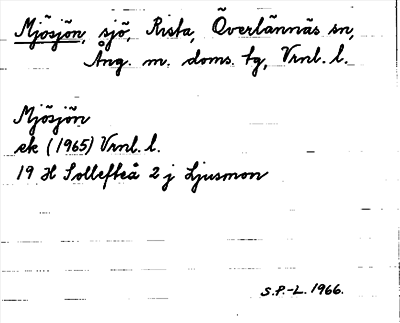 Mjösjön, sjö, Rista, Överlännäs sn,
Ång. m. doms. tg, Vrnl. l.
Mjösjön
ek (1965) Vrnl. l.
19 H Sollefteå 2 j Ljusmon
S.P.-L. 1966.